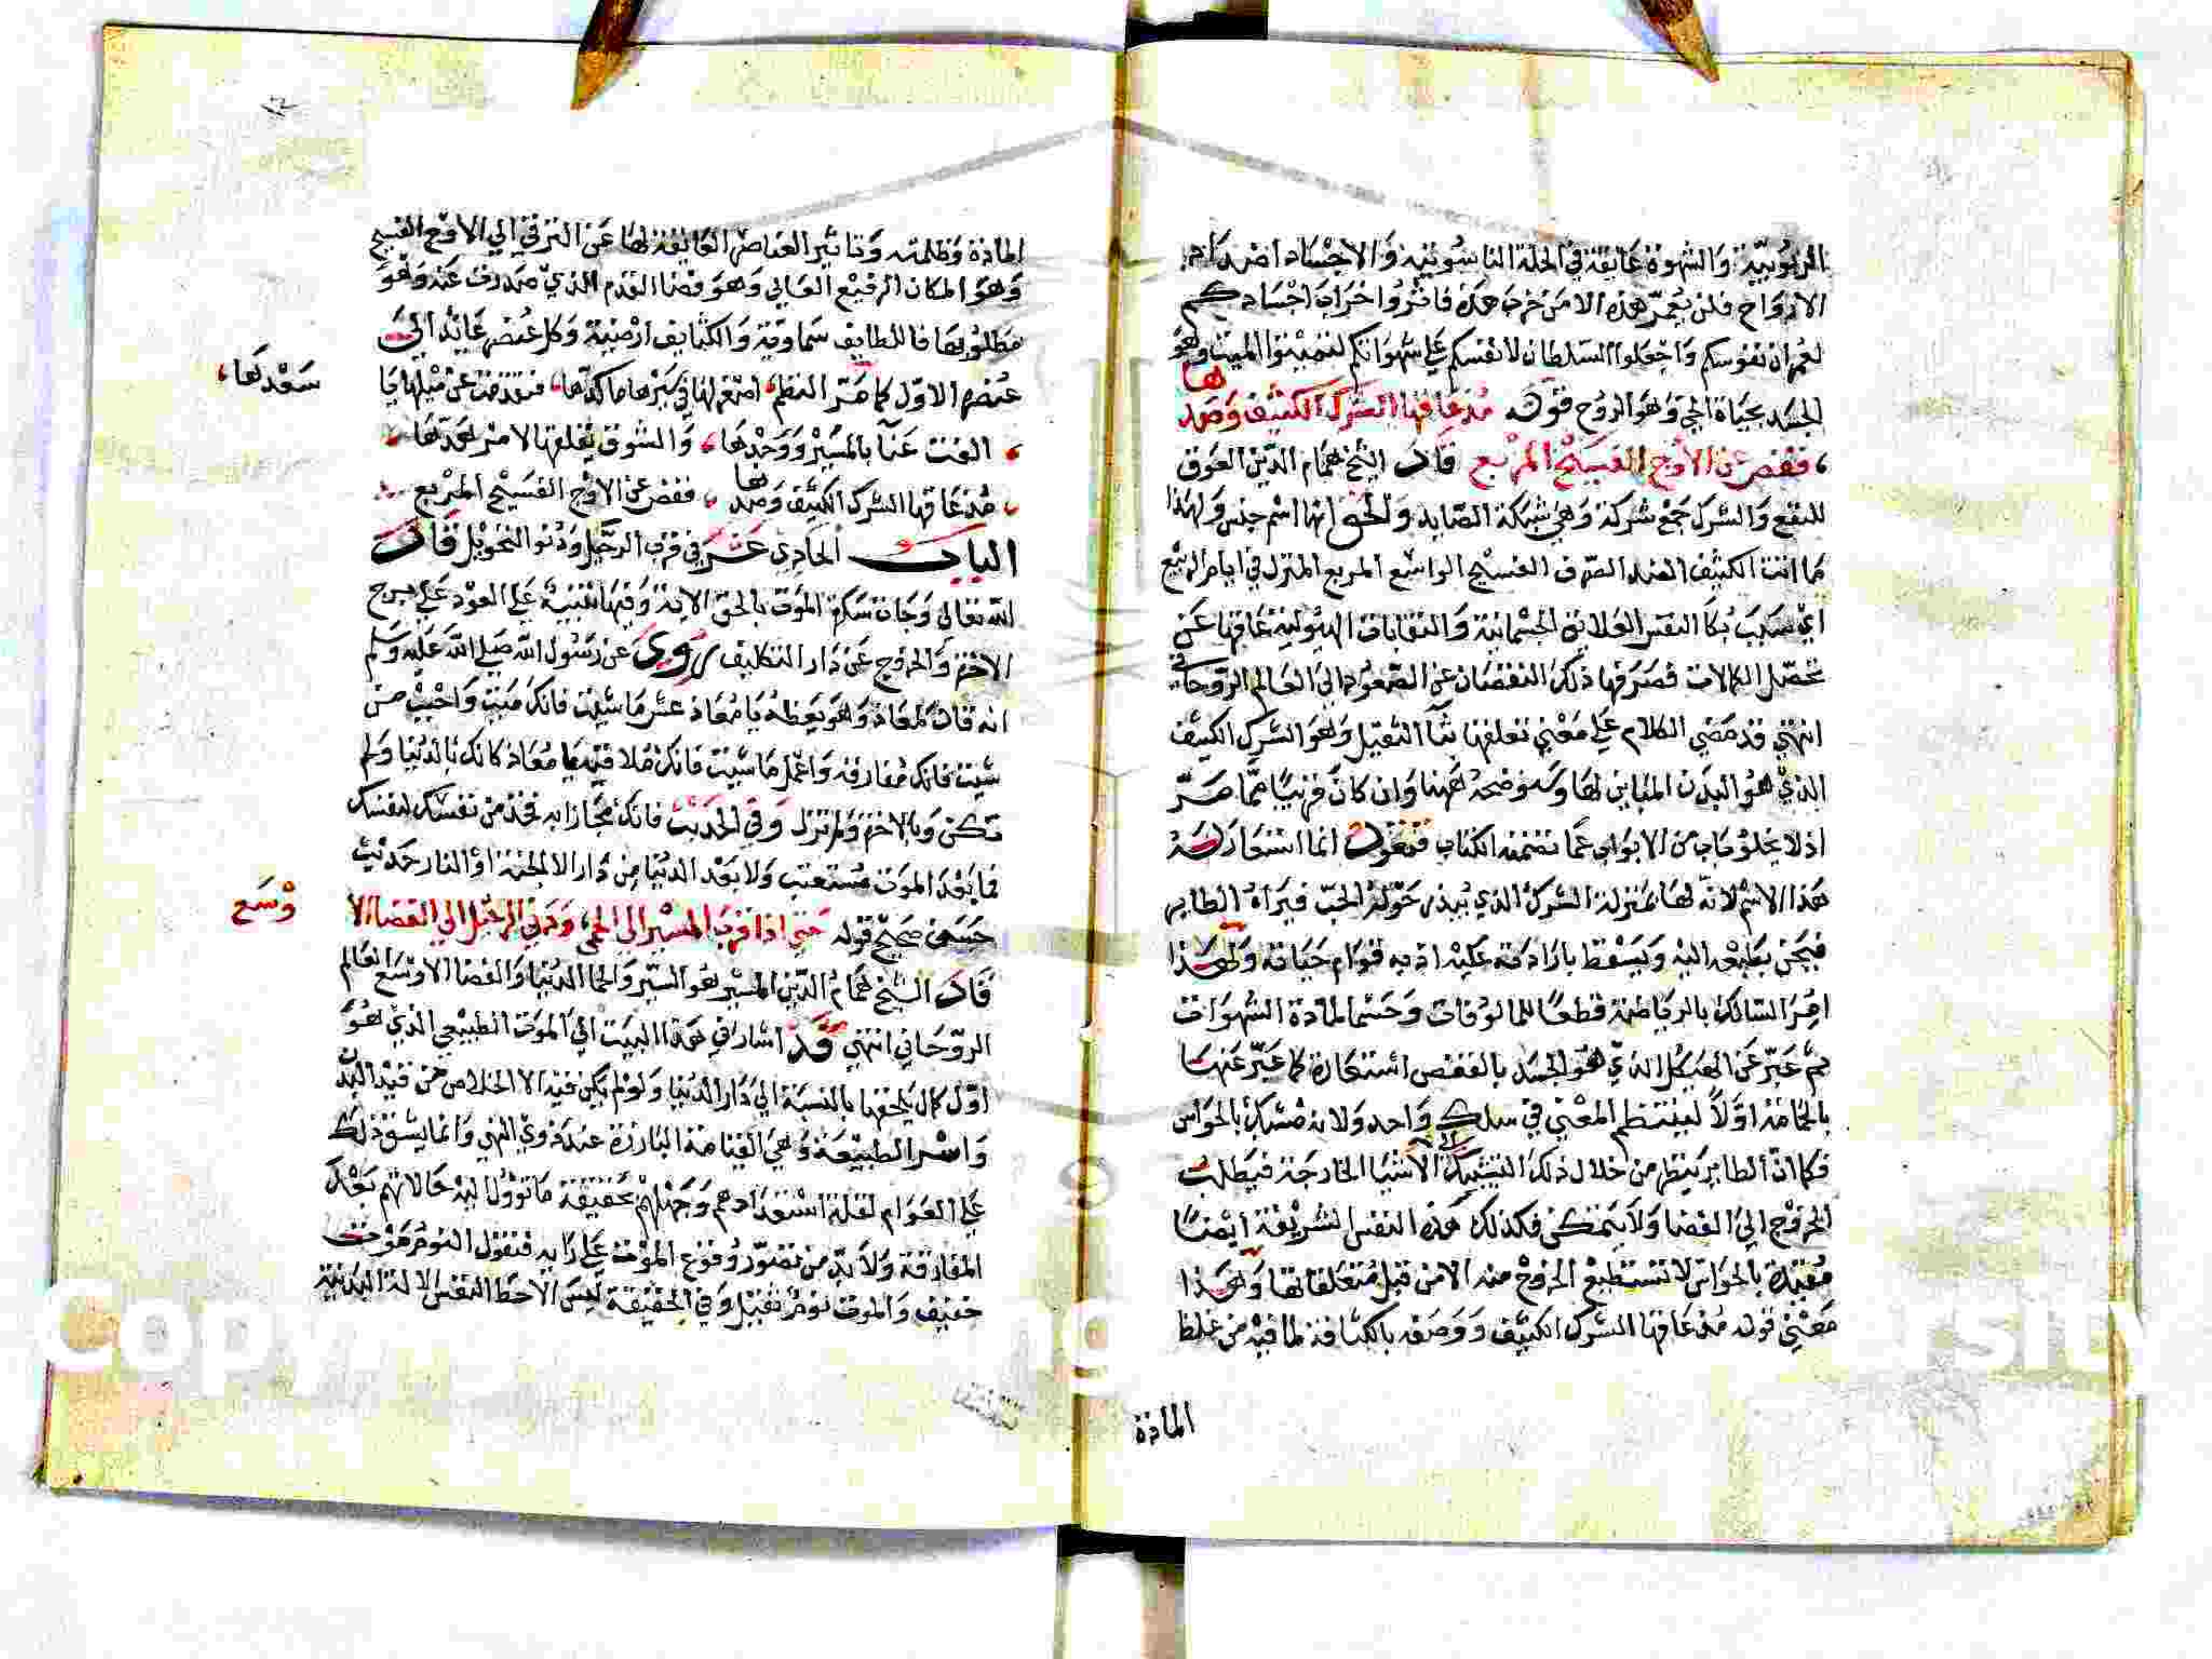 الربوبية والشهوة عايقة في الحلة الناسوتية والاجساد اضرداد
الارواح فلن يعمر هذه الامن خرب هذه فاثروا خراب اجسادكم
لعمران نفوسكم واجعلوا السلطان لانفسكم على شهواتكم لتميتوا الميت وهو
الجسد بحياة الحي وهو الروح قوله مذ عاقها الشرك الكثيف وصدها
قفص عن الاوج الفسيح المربع قال الشيخ همام الدين العوق
للنفع والشرك جمع شركة وهي شبكة الصايد والحق انها اسم جنس ولهذا
ما انت الكثيف الصد الصرف الفسيح الواسع المربع المنزل في ايام الربيع
اي سبب بكا النفس العلايق الجسمانية والنقابات الهيولية عاقها عن
تحصل الكمالات فصرفها ذلك النقصان عن الصعود الى العالم الروحاني
انتهى قد مضى الكلام على معنى تعلقها بثا الثقيل وهو الشرك الكثيف
الذي هو البدن المباين لها وسنوضحه ههنا وان كان قريبا مما مر
اذ لا يخلو باب من الابواب عما تضمنه الكتاب فنقول انما استعار له
هذا الاسم لانه لها بمنزلة الشرك الذي يبذر حوله الحب فيراه الطاير
فيحن بطبعه اليه ويسقط بارادته عليه اذ به قوام حياته ولهذا
امر السالك بالرياضة قطعا للمالوفات وحسما لمادة الشهوات
ثم عبر عن الهيكل الذي هو الجسد بالقفص استعارة كما عبر عنها
بالحمامة اولا لينتظم المعنى في سلك واحد ولانه مشبك بالحواس
فكما ان الطاير ينظر من خلال ذلك التشبيك الى الاشيا الخارجة فيطلب
الخروج الى الفضا ولا يتمكن فكذلك هذه النفس الشريفة ايضا
مقيدة بالحواس لا تستطيع الخروج منه الامن قبل متعلقاتها ولهذا
معنى قوله مذ عاقها الشرك الكثيف ووصفه بالكثافة لما فيه من غلظ
المادة
المادة وظلمته وتاثير العناصر العايقة لها عن الترقي الي الاوج الفسيح
وهو المكان الرفيع العالي وهو فضا القدم الذي صدرت عنه وهو
مطلوبها فاللطايف سماوية والكثايف ارضية وكل عنصر عايد الى
عنصره الاول كما مر النظم
سعدها
الفت عنا بالمسير ووجدها والشوق يقلقها لامر هدها
مذ عاقها الشرك الكثيف وصدها قفص عن الاوج الفسيح المربع
الباب الحادي عشر في قرب الرحيل ودنو التحويل قال
الله تعالى وجات سكرة الموت بالحق الاية وفيها تنبيه على العود على
الاخرة والخروج عن دار التكليف روى عن رسول الله صلى الله عليه وسلم
انه قال لمعاذ وهو يعظه يا معاذ عش ما شيت فانك ميت واحبب من
شيت فانك مفارقه واعمل ما شيت فانك ملاقيه يا معاذ كانك بالدنيا ولم
تكن وبالاخرة ولم تزل وفي الحديث فانك مجازا به فخذ من نفسك لنفسك
فما بعد الموت مستعتب ولا بعد الدنيا من دار الا الجنة او النار حديث
حسن صحيح قوله حتى اذا قرب المسير الى الحمى ودنى الرحيل الي الفضا الا
وسع
قال الشيخ همام الدين المسير هو السير والحما الدنيا والفضا الاوسع العالم
الروحاني انتهى قد اشار في هذا البيت الي الموت الطبيعي الذي هو
اول كمال يلحقها بالنسبة الى دار الدنيا ولو لم يكن فيه الا الخلاص من قيد البدن
واسر الطبيعة وهي القيامة البارزة عند ذوي النهي وانما يشق ذلك
على العوام لقلة استعدادهم وجهلهم بحقيقة ما تؤول اليه حالاتهم بعد
المفارقة ولا بد من تصور وقوع الموت على رايه فنقول النوم موت
خفيف والموت نوم ثقيل وفي الحقيقة ليس الاحط النفس الالة البدنية